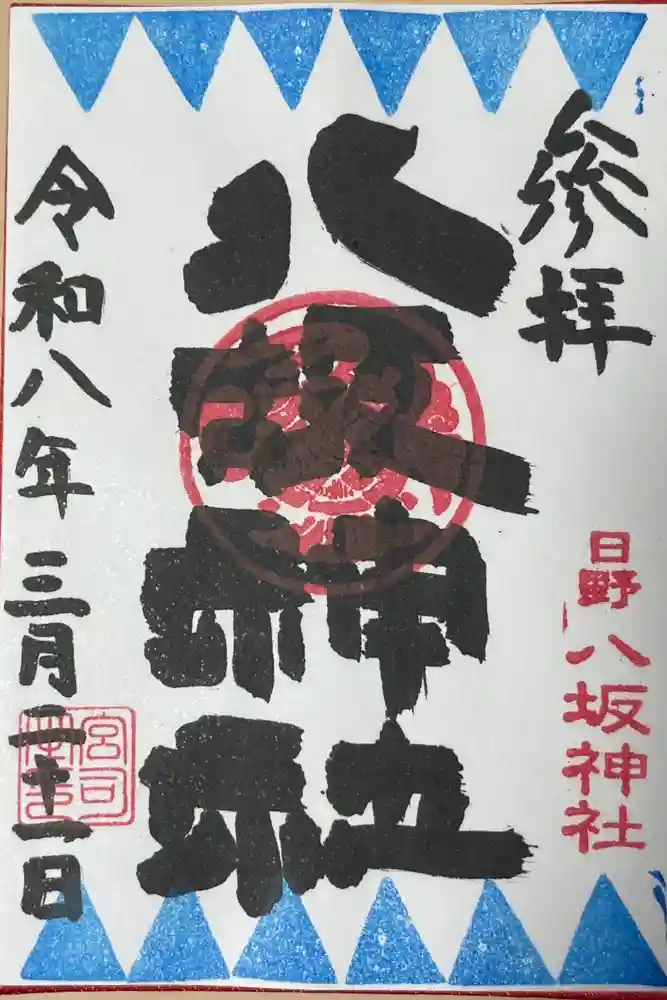 参拝
日野八坂神社
八坂神社
令和八年三月二十一日
宮司